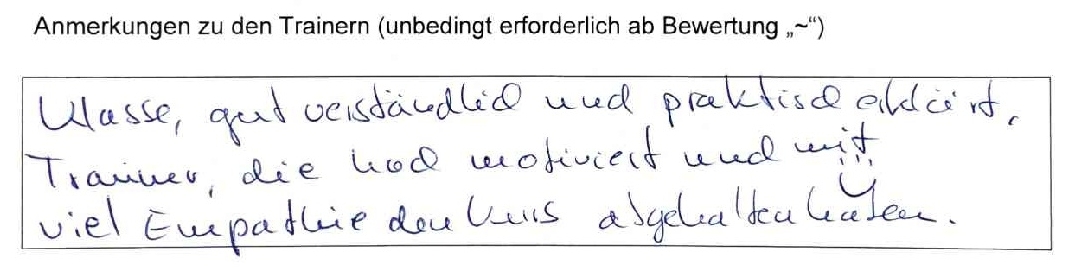 Anmerkungen zu den Trainern (unbedingt erforderlich ab Bewertung „~“)
Klasse, gut verständlich und praktisch erklärt.
Trainer, die hoch motiviert und mit
viel Empathie den Kurs abgehalten haben.